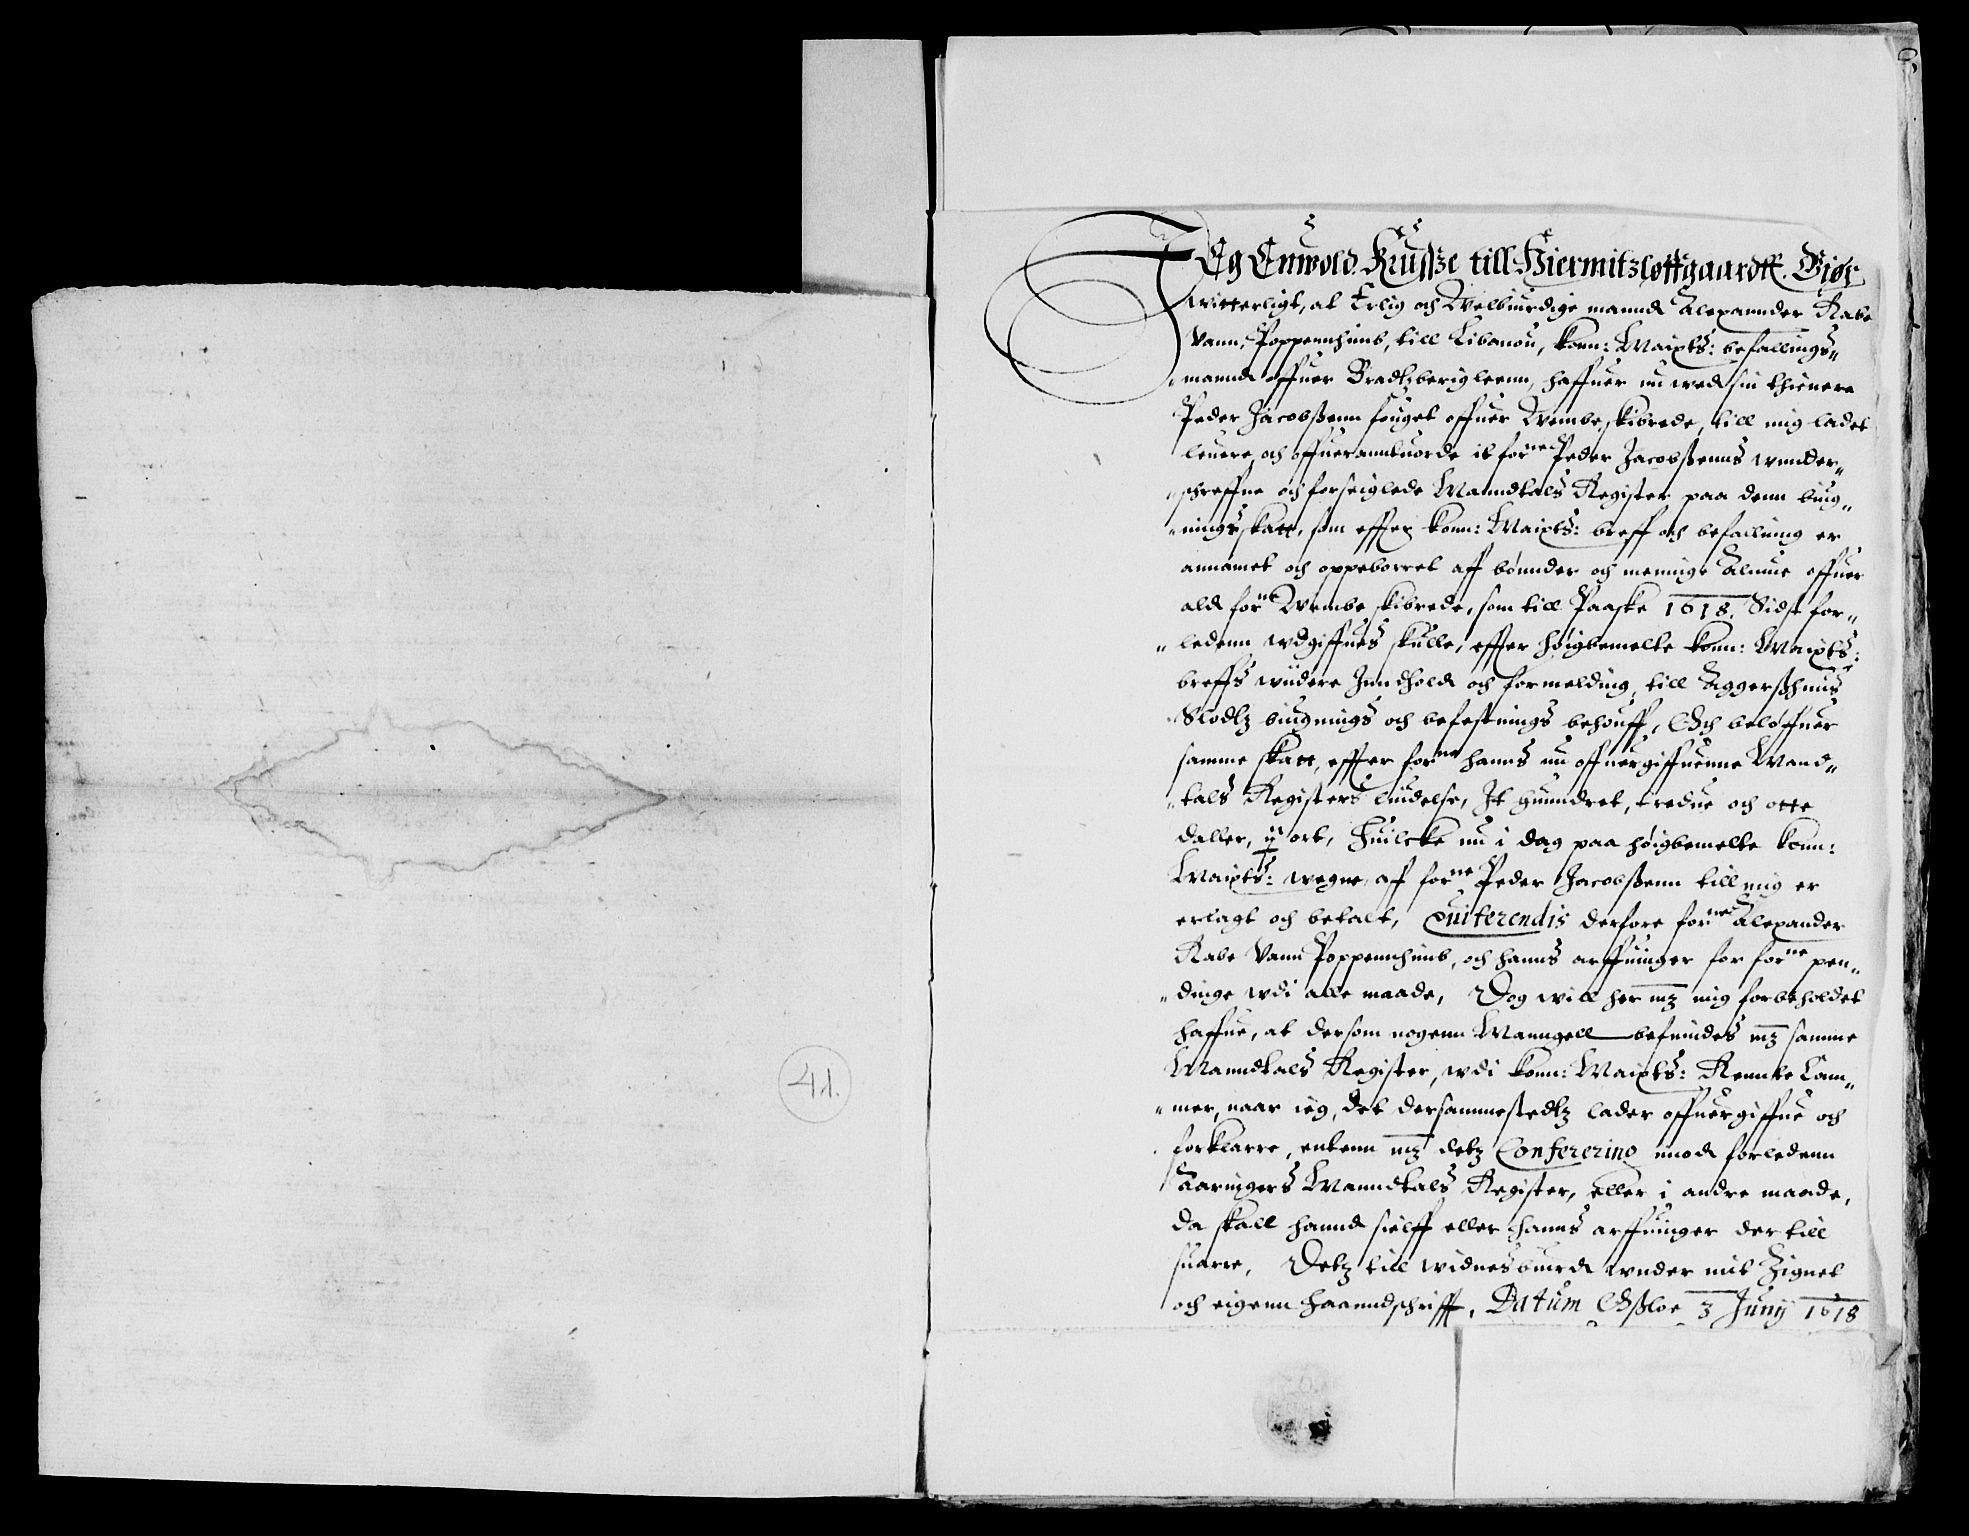 Jeg Enwold Krusse till Hiermitzløffgaardtt. Giør
witterligt, at Erlig och Welbiurdige mannd Alexannder Rabe
Vann, Poppennhimb, till Libanon, konn: Maiyts: befallings„
mannd offuer Bradtzberigleenn, haffuer nu wed sin thienere
Peder Jacobßenn fouget offuer Wembe skibrede, till mig ladet
leuere och offueranntuorde it forne Peder Jacobßenns wnnder„
„schreffne och forseiglede Manndtals Register paa denn bug„
„ningsskatt, som effter konn: Maiyts: breff och befalling er
annamet och oppeborret aff bønnder och meninge Almue offuer
ald forne Wembe skibrede, som till Paaske 1618. Sidst for„
„ledenn wdgiffues skulle, effter høigbemelte konn: Maiyts:
breffs widere Inndhold och formelding, till Aggerßhuus
Slodtz bugnings och befestnings behouff, Och beløffuer
samme skatt, effter forne hanns nu offuergiffuenne Mand„
„tals Registers liudelse, It hunndret, tredue och otte
daller, ij ort, Huilcke nu i dag paa høigbemelte konn:
Maiyts: wegne, aff forne Peder Jacobßenn till mig er
erlagt och betalt, Quiterendis derfore forne Alexander
Rabe Vann Poppennhimb, och hanns arffuinger for forne pen„
„dinge wdi alle maade, Dog will her mz mig forbeholdet
haffue, at dersom nogenn Manngell befindes mz samme
Manndtals Register, wdi konn: Maiyts: Rennte Cam„
„mer, naar ieg, det dersammestedtz lader offuergiffue och
forklarre, entenn mz detz Conferering imod forledenn
Aaringers Manndtals Register, eller i andre maade,
da skall hannd sielff eller hanns arffuinger der till
suarre, Detz till widnesbiurd wnder mit Zignet
och eigenn Haanndschrifft, Datum Oßloe 3 Junij 1618
41.